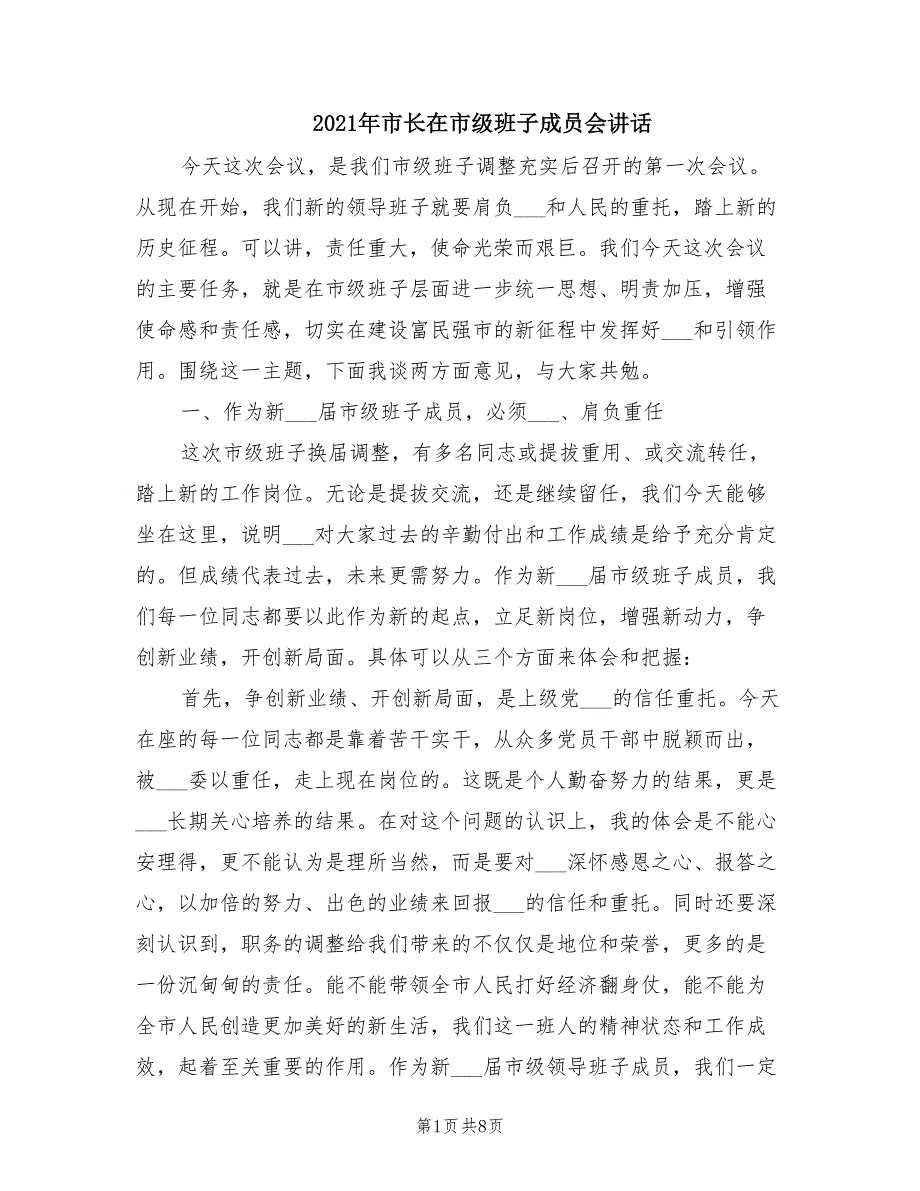 2021年市长在市级班子成员会讲话
今天这次会议，是我们市级班子调整充实后召开的第一次会议。
从现在开始，我们新的领导班子就要肩负___和人民的重托，踏上新的
历史征程。可以讲，责任重大，使命光荣而艰巨。我们今天这次会议
的主要任务，就是在市级班子层面进一步统一思想、明责加压，增强
使命感和责任感，切实在建设富民强市的新征程中发挥好___和引领作
用。围绕这一主题，下面我谈两方面意见，与大家共勉。
一、作为新___届市级班子成员，必须___、肩负重任
这次市级班子换届调整，有多名同志或提拔重用、或交流转任，
踏上新的工作岗位。无论是提拔交流，还是继续留任，我们今天能够
坐在这里，说明___对大家过去的辛勤付出和工作成绩是给予充分肯定
的。但成绩代表过去，未来更需努力。作为新___届市级班子成员，我
们每一位同志都要以此作为新的起点，立足新岗位，增强新动力，争
创新业绩，开创新局面。具体可以从三个方面来体会和把握：
首先，争创新业绩、开创新局面，是上级党___的信任重托。今天
在座的每一位同志都是靠着苦干实干，从众多党员干部中脱颖而出，
被___委以重任，走上现在岗位的。这既是个人勤奋努力的结果，更是
___长期关心培养的结果。在对这个问题的认识上，我的体会是不能心
安理得，更不能认为是理所当然，而是要对___深怀感恩之心、报答之
心，以加倍的努力、出色的业绩来回报___的信任和重托。同时还要深
刻认识到，职务的调整给我们带来的不仅仅是地位和荣誉，更多的是
一份沉甸甸的责任。能不能带领全市人民打好经济翻身仗，能不能为
全市人民创造更加美好的新生活，我们这一班人的精神状态和工作成
效，起着至关重要的作用。作为新___届市级领导班子成员，我们一定
第1页 共8页